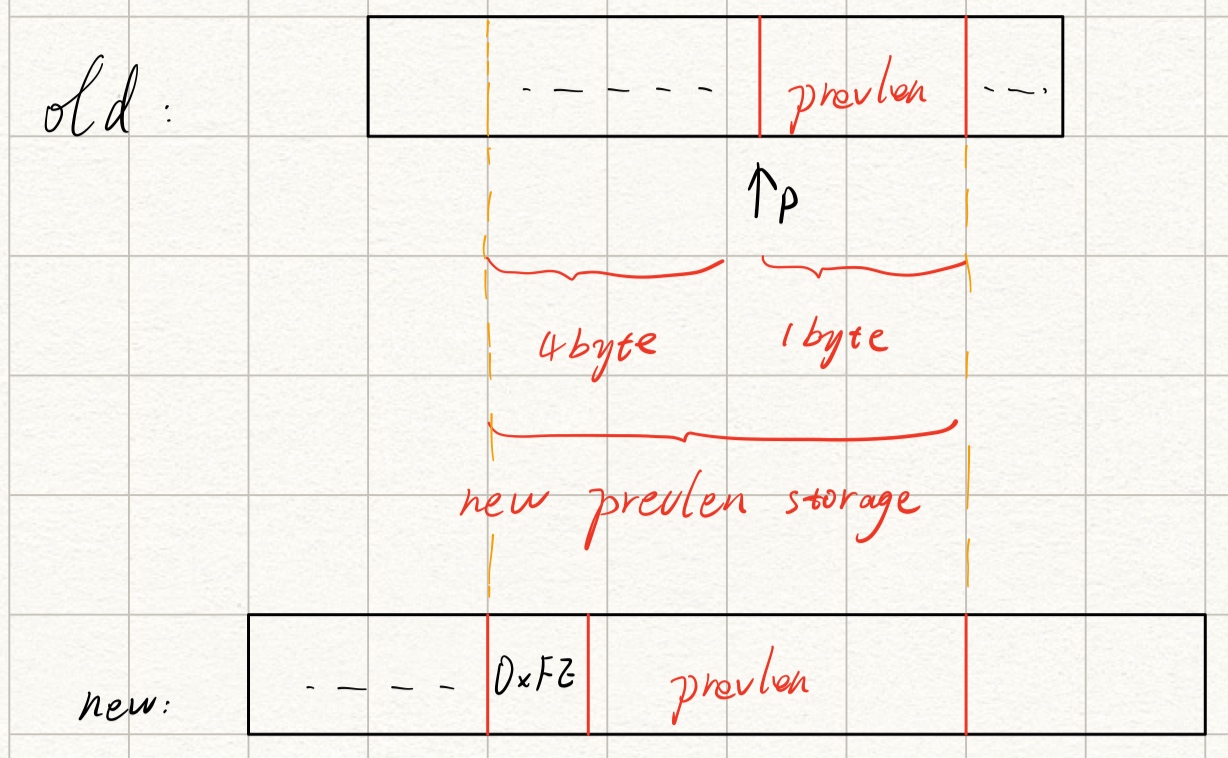 old:
prevlen
↑p
4byte
1byte
new prevlen storage
new:
0xFE
prevlen